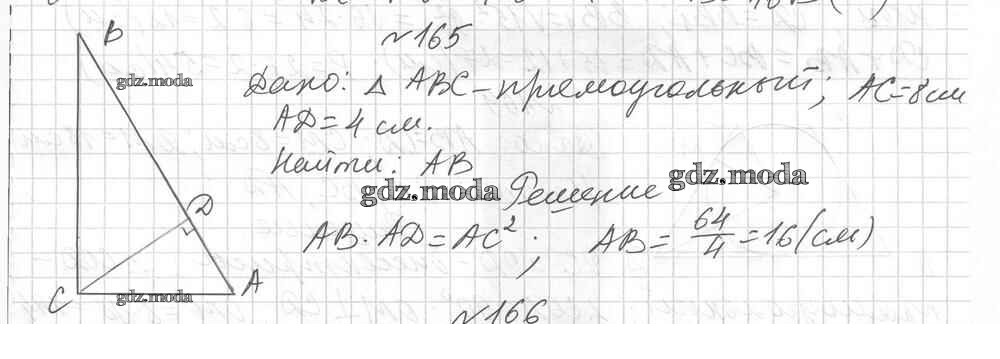 №165
B
gdz.moda
Дано: △ ABC - прямоугольный; AC = 8 см
AD = 4 см.
Найти: AB
gdz.moda Решение gdz.moda
D
AB · AD = AC²; AB = 64/4 = 16 (см)
C gdz.moda A
№166